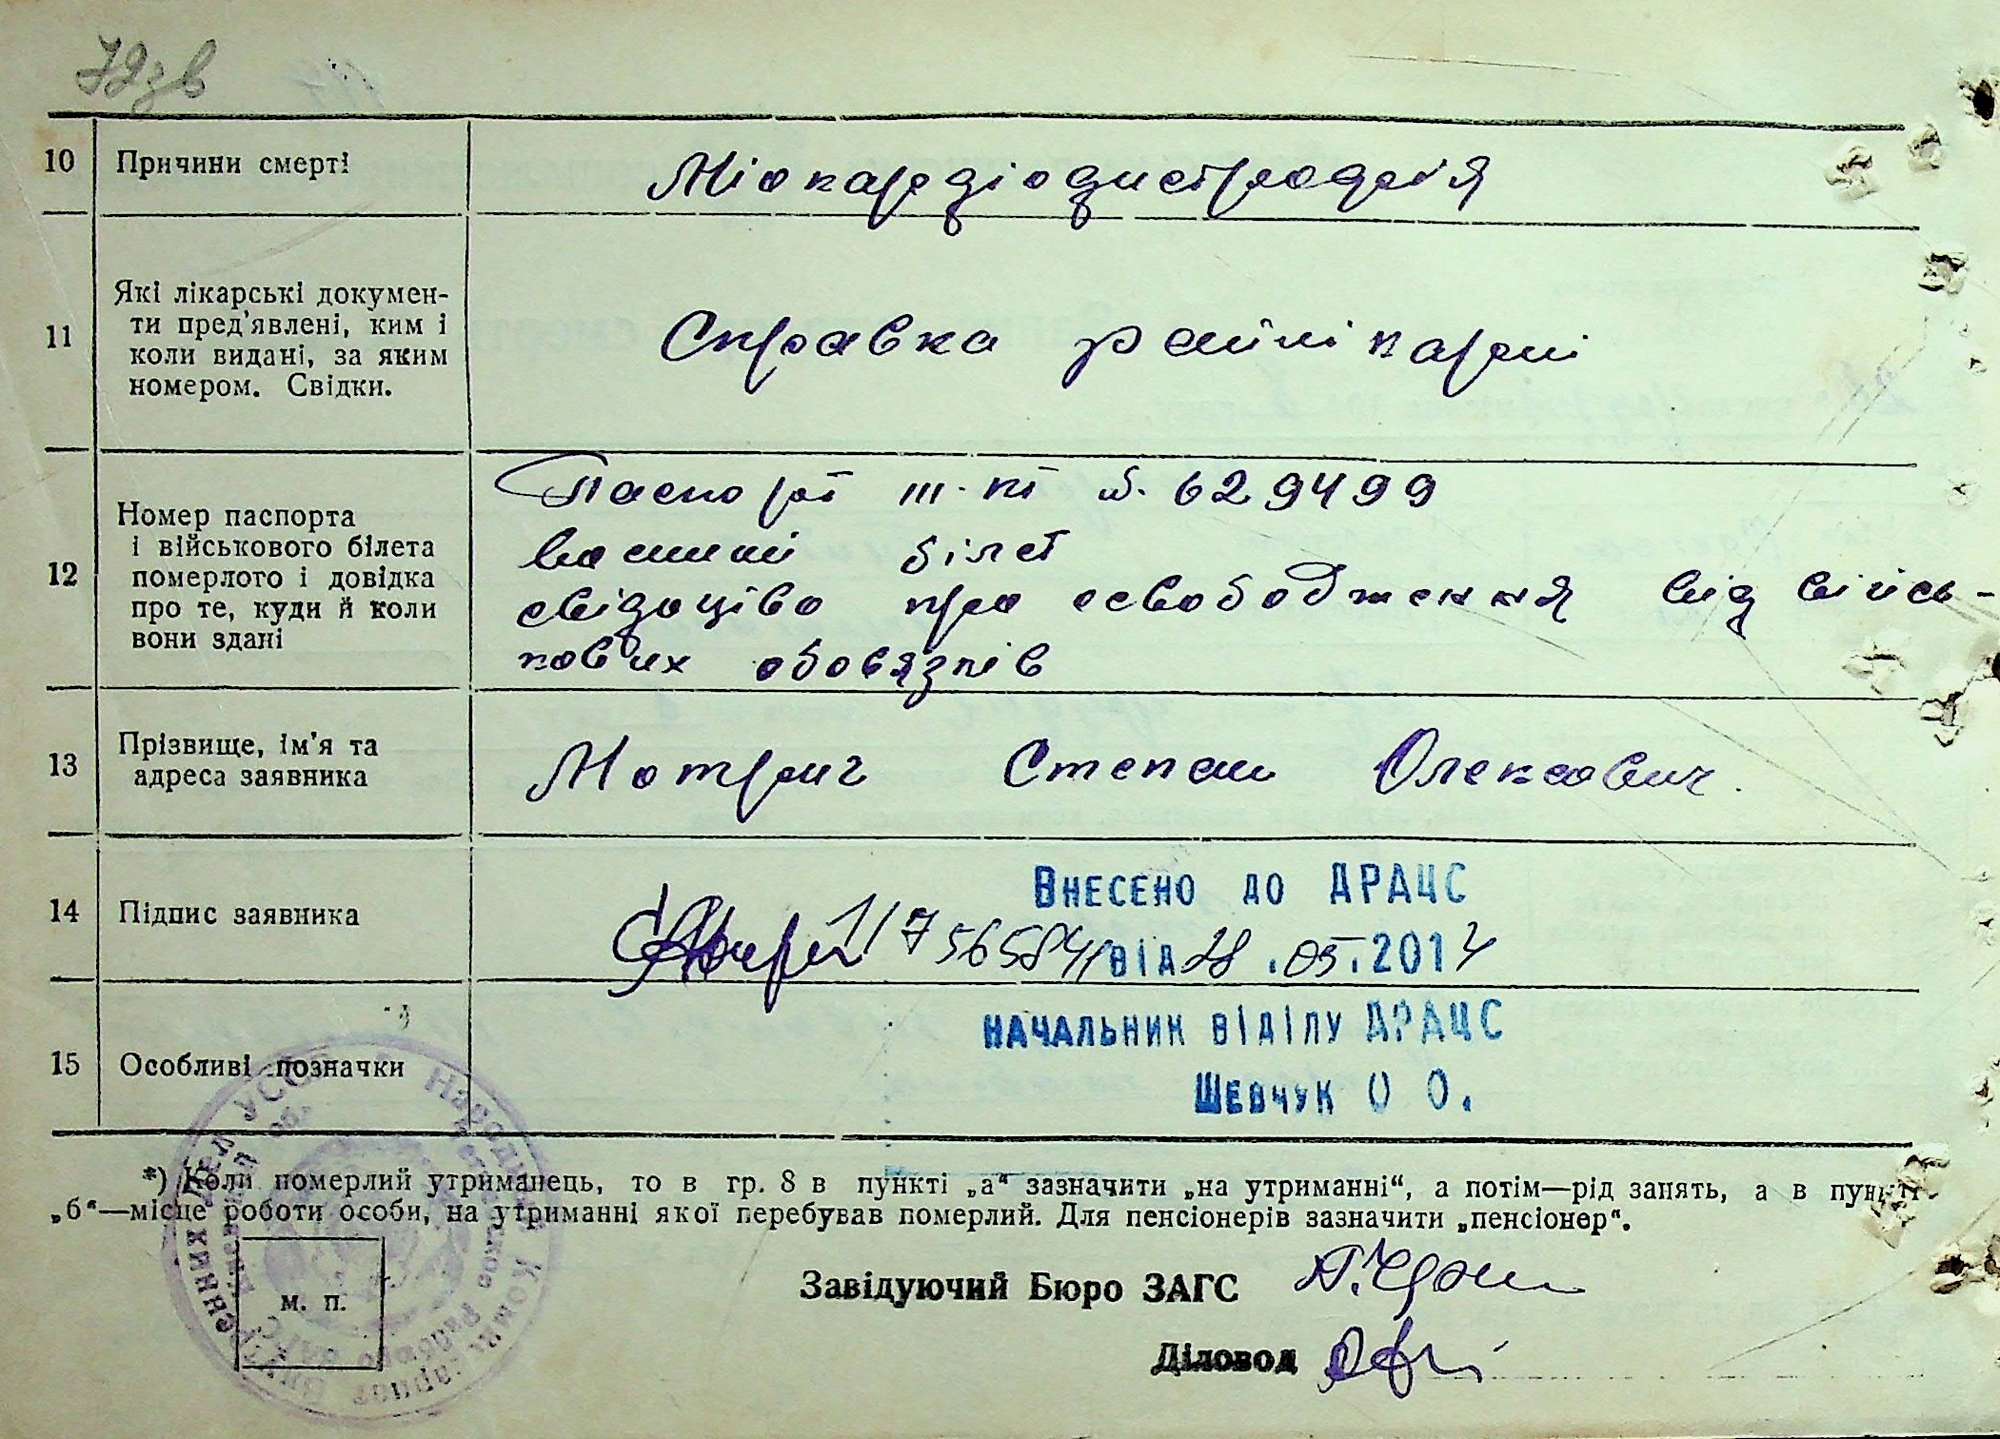 72зв
10 Причини смерті Міокардіодистрофія
11 Які лікарські докумен-
ти пред'явлені, ким і
коли видані, за яким
номером. Свідки.
Справка райлікарні
12 Номер паспорта
і військового білета
померлого і довідка
про те, куди й коли
вони здані
Паспорт ІІІ-КТ № 629499
білет
свідоцтво про освободження від війсь-
кових обовязків
13 Прізвище, ім'я та
адреса заявника
Мотрич Степан Олексович.
14 Підпис заявника
Внесено до ДРАЦС
від 28.05.2014
15 Особливі позначки
начальник відділу ДРАЦС
Шевчук О О.
*) Коли померлий утриманець, то в гр. 8 в пункті „а“ зазначити „на утриманні“, а потім—рід занять, а в пункті
„б“—місце роботи особи, на утриманні якої перебував померлий. Для пенсіонерів зазначити „пенсіонер“.
Завідуючий Бюро ЗАГС
м. п.
Діловод